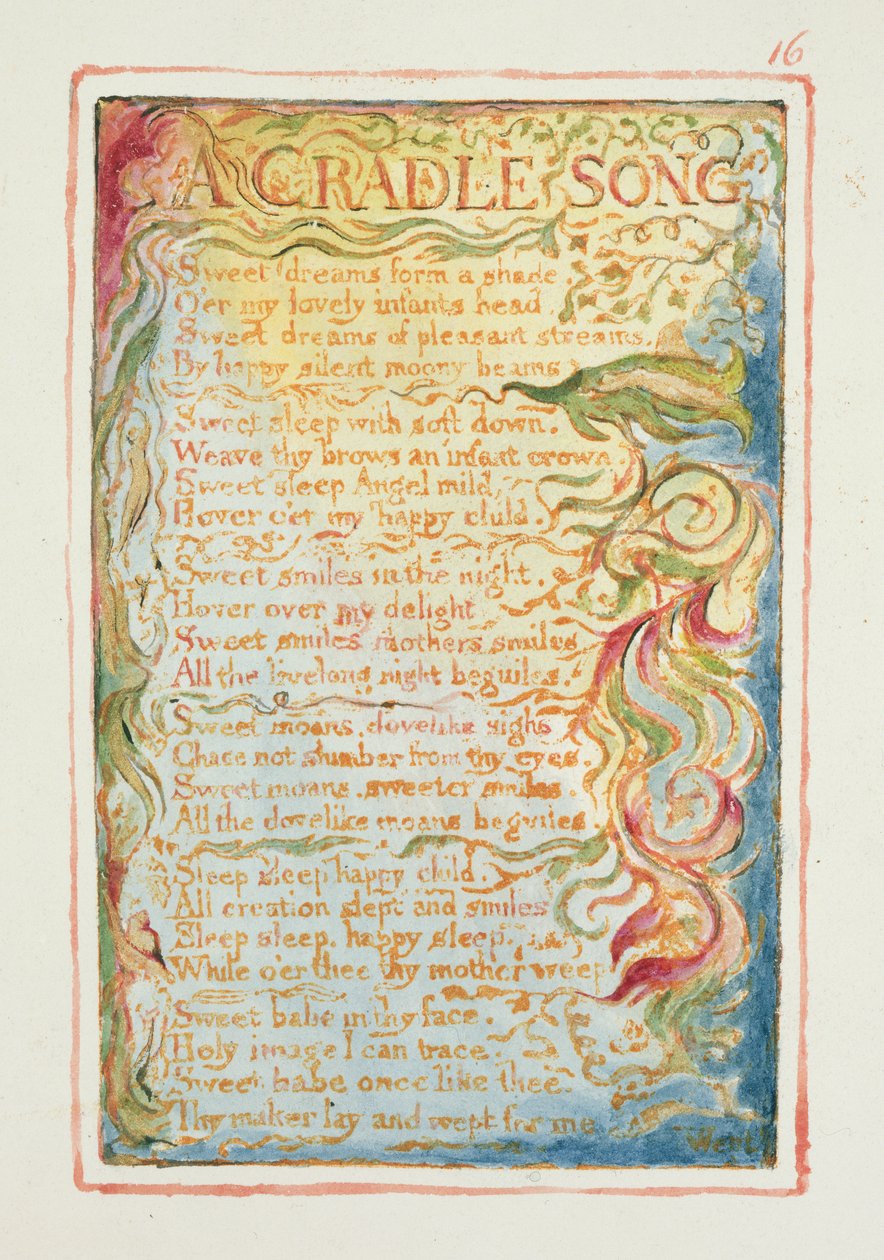 16
A CRADLE SONG
Sweet dreams form a shade
O'er my lovely infants head.
Sweet dreams of pleasant streams.
By happy silent moony beams
Sweet sleep with soft down.
Weave thy brows an infant crown.
Sweet sleep Angel mild,
Hover o'er my happy child.
Sweet smiles in the night.
Hover over my delight
Sweet smiles mothers smiles
All the livelong night beguiles.
Sweet moans, dovelike sighs
Chace not slumber from thy eyes.
Sweet moans, sweeter smiles.
All the dovelike moans beguiles.
Sleep sleep happy child.
All creation slept and smiles
Sleep sleep, happy sleep.
While o'er thee thy mother weep
Sweet babe in thy face.
Holy image I can trace.
Sweet babe once like thee
Thy maker lay and wept for me
Wept